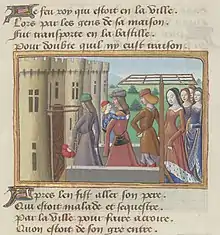 Le feu roy qui estoit en la ville.
Lors par les gens de sa maison.
Fut transporte en la bastille
Pour doubte quil ny eust traison
Apres len fist aller son pere.
Qui estoit malade et sequestre.
Par la ville pour faire acroire.
Quon estoit de son gre entre.